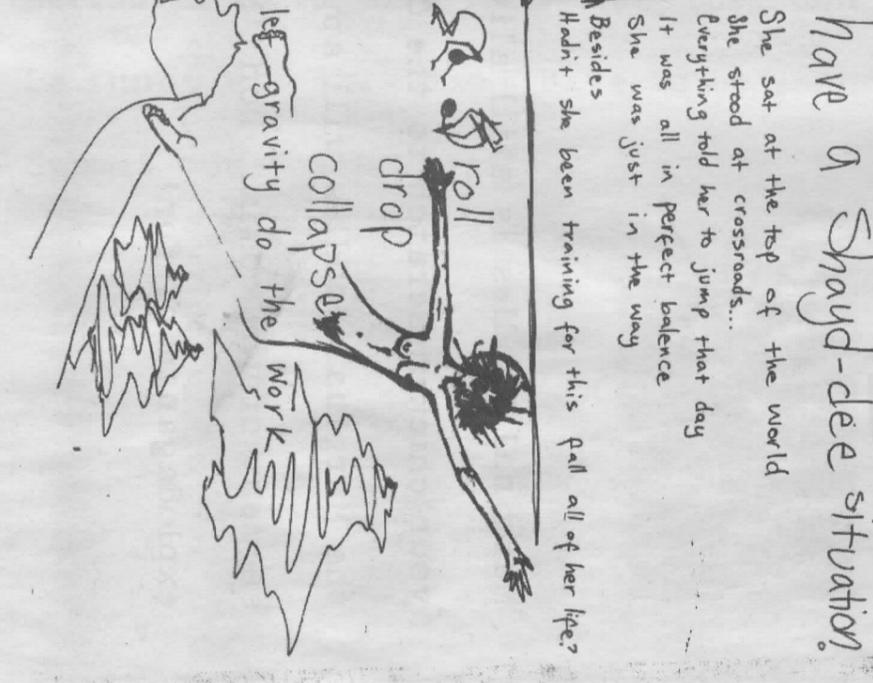 have a Shayd-dee situation.
She sat at the top of the world
She stood at crossroads...
Everything told her to jump that day
It was all in perfect balence
She was just in the way
Besides
Hadn't she been training for this fall all of her life?
roll
drop
collapse
let gravity do the work